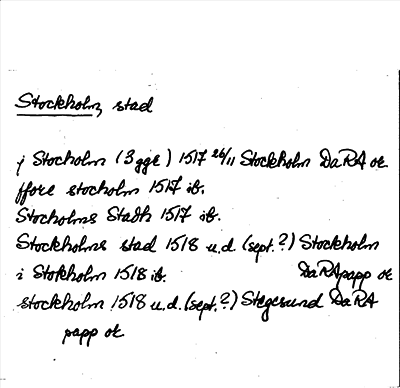 Stockholm, stad
j Stocholm (3 ggr) 1517 26/11 Stockholm DaRA ok
ffore stocholm 1517 ib.
Stocholms Stadh 1517 ib.
Stockholms stad 1518 u.d. (sept.?) Stockholm
i Stokholm 1518 ib. DaRA papp ok
stockholm 1518 u.d. (sept.?) Stegesund DaRA
papp ok